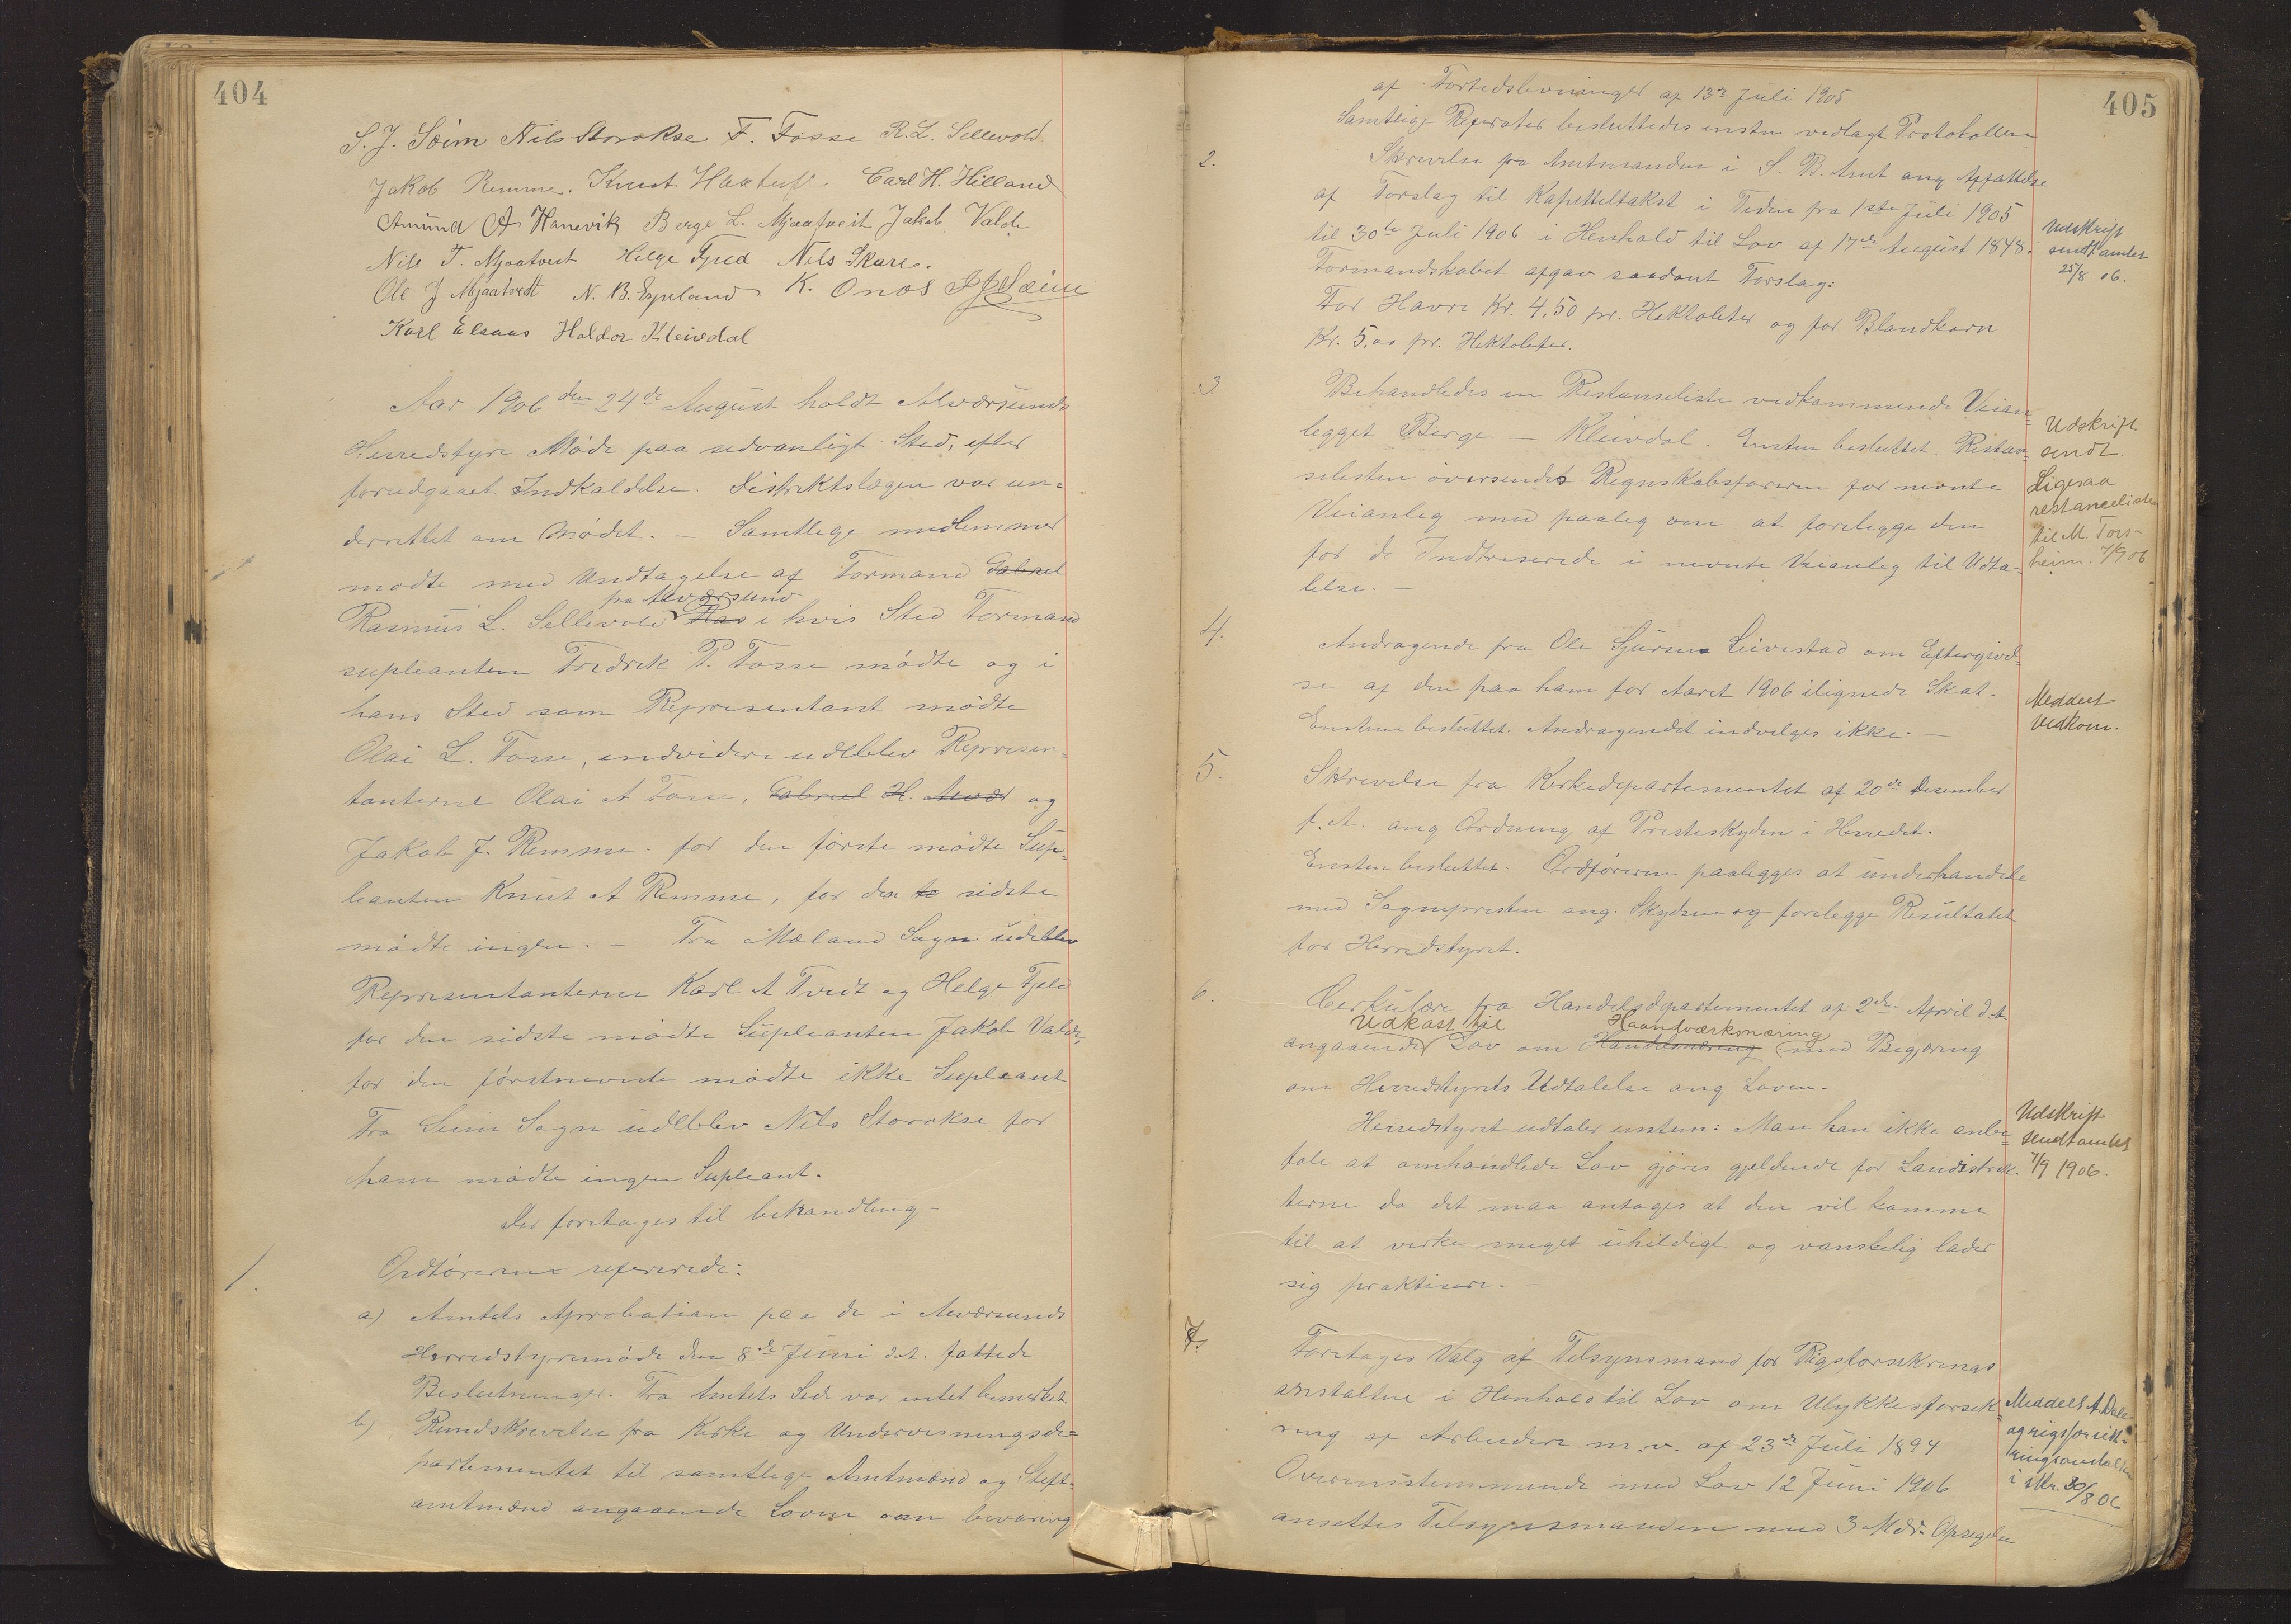 404
S. J. Soeim Nils Storokse F. Fosse R. L. Sellevold.
Jakob Remme. Knut Haatuft. Carl H. Hilland
Amund A Hanevik Berge L. Mjaatveit Jakob Valde
Nils T. Mjaatveit Helge Fjeld Nils Skare.
Ole J Mjaatvedt N. B. Espeland K. Onos
Karl Elsaas Haldor Kleivdal
Aar 1906 den 24de August holdt Alværsunds
Herredstyre Møde paa sedvanligt Sted, efter
forudgaaet Indkaldelse. Distriktslægen var un=
derrettet om Mødet. — Samtlige medlemmer
mødte med Undtagelse af Formand Gabriel
fra Alværsund
Rasmus L. Sellevold Has i hvis Sted Formand
supleanten Fredrik P. Fosse mødte og i
hans Sted som Representant mødte
Olai L. Fosse, endvidere udeblev Represen=
tanterne Olai A Fosse, Gabriel H. Alvær og
Jakob J. Remme. for den første mødte Sup=
leanten Knut A Remme, for den to sidste
mødte ingen. — Fra Mæland Sogn udeblev
Representanterne Karl A Tvedt og Helge Fjeld
for den sidste mødte Supleanten Jakob Valde,
for den førstnevnte mødte ikke Supleant
Fra Seim Sogn udeblev Nils Storokse for
ham mødte ingen Supleant.
Der foretages til behandling –
1. Ordføreren refererede:
a) Amtets Aprobation paa de i Alværsunds
Herredstyremøde den 8de Juni d.A. fattede
Beslutninger. Fra Amtets Side var intet bemerket.
b) Rundskrivelse fra Kirke og Undervisningsde=
partementet til samtlige Amtmænd og Stift=
amtmænd angaaende Loven om bevaring
405
af Fortidslevninger af 13de Juli 1905
Samtlige Referater besluttedes enstem vedlagt Protokollen
2. Skrivelse fra Amtmanden i S. B. Amt ang Affattelse
af Forslag til Kapitteltakst i Tiden fra 1ste Juli 1905
til 30te Juli 1906 i Henhold til Lov af 17de August 1848.
Udskrift
sendt amtet
25/8 06.
Formandskabet afgav saadant Forslag:
For Havre Kr. 4,50 pr. Hektoleter og for Blandkorn
Kr. 5.00 pr. Hektoleter.
3. Behandledes en Restanseliste vedkommende Veian=
legget Berge — Kleivdal. Enstem besluttet. Restan=
selisten oversendes Regnskabsføreren for nevnte
Veianleg med paaleg om at forelegge den
for de Indtreserede i nevnte Veianleg til Udta=
lelse. —
Udskrift
sendt.
Ligesaa
restancelisten
til M. Tors-
heim. 7/9 06
4. Andragende fra Ole Sjursen Leivestad om Eftergivel=
se af den paa ham for Aaret 1906 ilignede Skat.
Enstem besluttet. Andragendet indvelges ikke. —
Meddelt
Vedkom.
5. Skrivelse fra Kirkedepartementet af 20de Desember
f. A. ang Ordning af Presteskyden i Herredet.
Enstem besluttet. Ordføreren paalegges at underhandle
med Sognepresten ang. Skydsen og forelegge Resultatet
for Herredstyret.
6. Cerkulære fra Handelsdepartementet af 2den April d.A.
Udkast til Haandværksnæring
angaaende Lov om Handelsnæring med Begjæring
om Herredstyrets Udtalelse ang Loven.
Herredstyret udtaler enstem: Man kan ikke anbe=
fale at omhandlede Lov gjøres gjeldende for Landistrik=
terne da det maa antages at den vil komme
til at verke meget uhildigt og vanskelig lader
sig praktisere. —
Udskrift
sendt amtet
7/9 1906.
7. Foretages Valg af Tilsynsmand for Rigsforsikrings
anstalten i Henhold til Lov om Ulykkesforsik=
ring af Arbeidere m.v. af 23de Juli 1894
Overensstemmende med Lov 12 Juni 1906
ansettes Tilsynsmanden med 3 Mdr. Opsigelse
Meddelt A. Dale
og rigsforsik-
ringsanstalten
i skr. 30/8 06